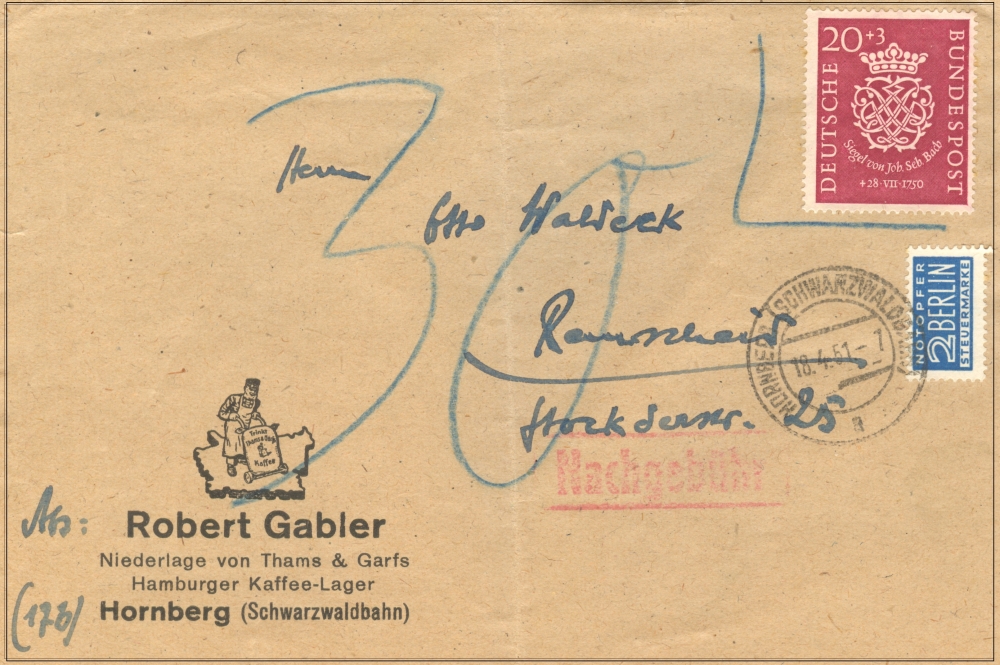 20+3
DEUTSCHE
BUNDESPOST
Siegel von Joh. Seb. Bach
+28·VII·1750
30
L
Herrn
Otto Waldeck
NOTOPFER
2 BERLIN
STEUERMARKE
HORNBERG (SCHWARZWALDBAHN)
18.4.51-7
a
Remscheid
Stockderstr. 25
Nachgebühr
Trinkt
Thams & Garfs
Kaffee
Abs:
Robert Gabler
Niederlage von Thams & Garfs
Hamburger Kaffee-Lager
(17b)
Hornberg (Schwarzwaldbahn)